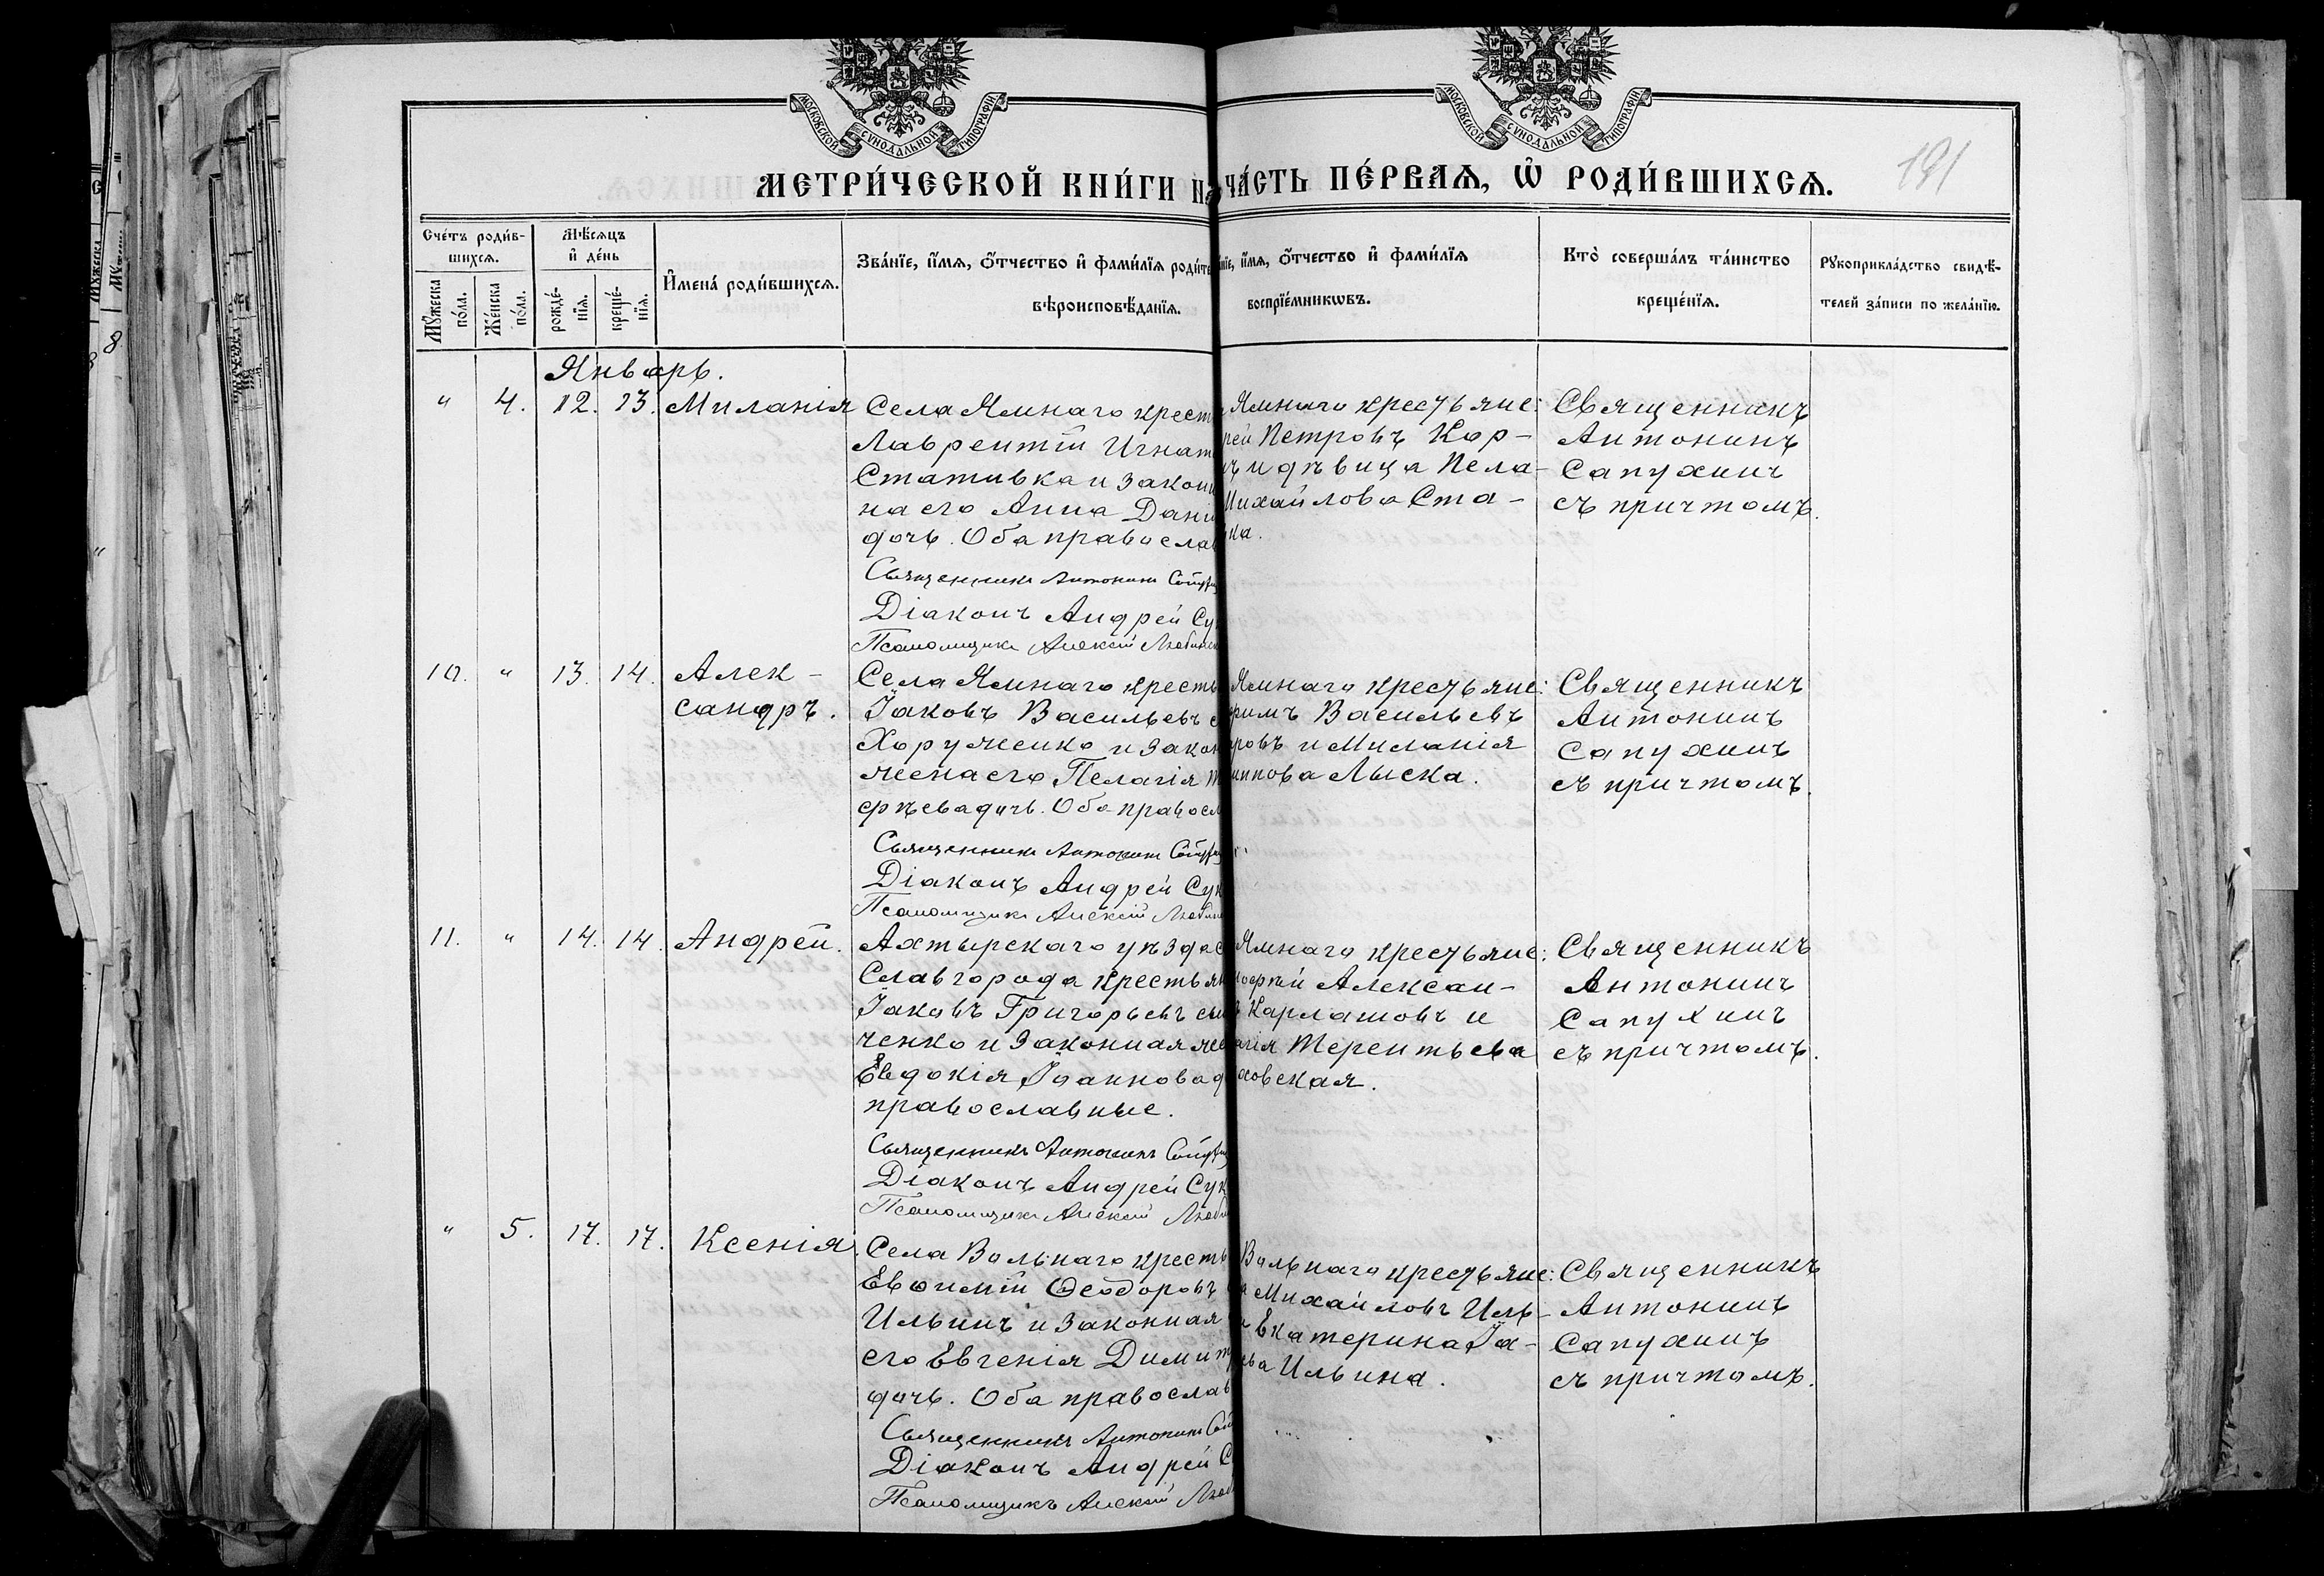 МОСКОВСКОЙ СѴНОДАЛЬНОЙ ТИПОГРАФІИ
МОСКОВСКОЙ СѴНОДАЛЬНОЙ ТИПОГРАФІИ
МЕТРИ́ЧЕСКОЙ КНИ́ГИ Н
ЧА́СТЬ ПЕ́РВАѦ, Ѽ РОДИ́ВШИХСѦ.
191
Сче́тъ роди́в-
шихсѧ.
Мꙋ́жеска по́ла.
Же́нска по́ла.
Мѣ́сѧцъ
и҆ де́нь
рожде́-
нїѧ.
креще́-
нїѧ.
И҆мена̀ роди́вшихсѧ.
Зва́нїе, и҆́мѧ, ѻ҆́тчество и҆ фами́лїѧ роди́те
вѣроисповѣ́данїѧ.
нїе, и҆́мѧ, ѻ҆́тчество и҆ фами́лїѧ
воспрїе́мникѡвъ.
Кто̀ соверша́лъ та́инство
креще́нїѧ.
Рꙋкоприкла́дство свидѣ́-
телей за́писи по жела́нїю.
Январь.
" 4. 12. 13. Миланія
Села Ямнаго крест
Лаврентій Игнат
Стативка и закон
на его Анна Дані
дочь. Оба правосла
Священникъ Антонинъ Сапух
Діаконъ Андрей Су
Псаломщикъ Алексій
Ямнаго крестьяне:
рей Петровъ Кор-
ъ и дѣвица Пела-
Михайлова Ста-
ка.
Священникъ
Антонинъ
Сапухинъ
съ причтомъ.
10. " 13. 14. Алек-
сандръ.
Села Ямнаго кресть
Іаковъ Васильевъ с
Хоружепко и закон
жена его Пелагія Т
фѣева дочь. Оба правосл
Священникъ Антонинъ Сапух
Діаконъ Андрей Сук
Псаломщикъ Алексій
Ямнаго крестьяне:
фимъ Васильевъ
ровъ и Миланія
иппова Лыска.
Священникъ
Антонинъ
Сапухинъ
съ причтомъ.
11. " 14. 14. Андрей.
Ахтырскаго уѣзда с
Славгорода крестьян
Іаковъ Григорьевъ сы
ченко и законная же
Евдокія Іоаннова д
православные.
Священникъ Антонинъ Сапух
Діаконъ Андрей Сук
Псаломщикъ Алексій
Ямнаго крестьяне:
офій Алексан-
Карлашовъ и
агія Терентьева
ховская.
Священникъ
Антонинъ
Сапухинъ
съ причтомъ.
" 5. 17. 17. Ксенія.
Села Вольнаго кресть
Евѳимій Ѳеодоровъ
Ильинъ и законная
его Евгенія Димит
дочь. Оба православ
Священникъ Антонинъ Сап
Діаконъ Андрей С
Псаломщикъ Алексій
Вольнаго крестьяне:
а Михайловъ Иль-
и Екатерина Іа-
ева Ильина.
Священникъ
Антонинъ
Сапухинъ
съ причтомъ.